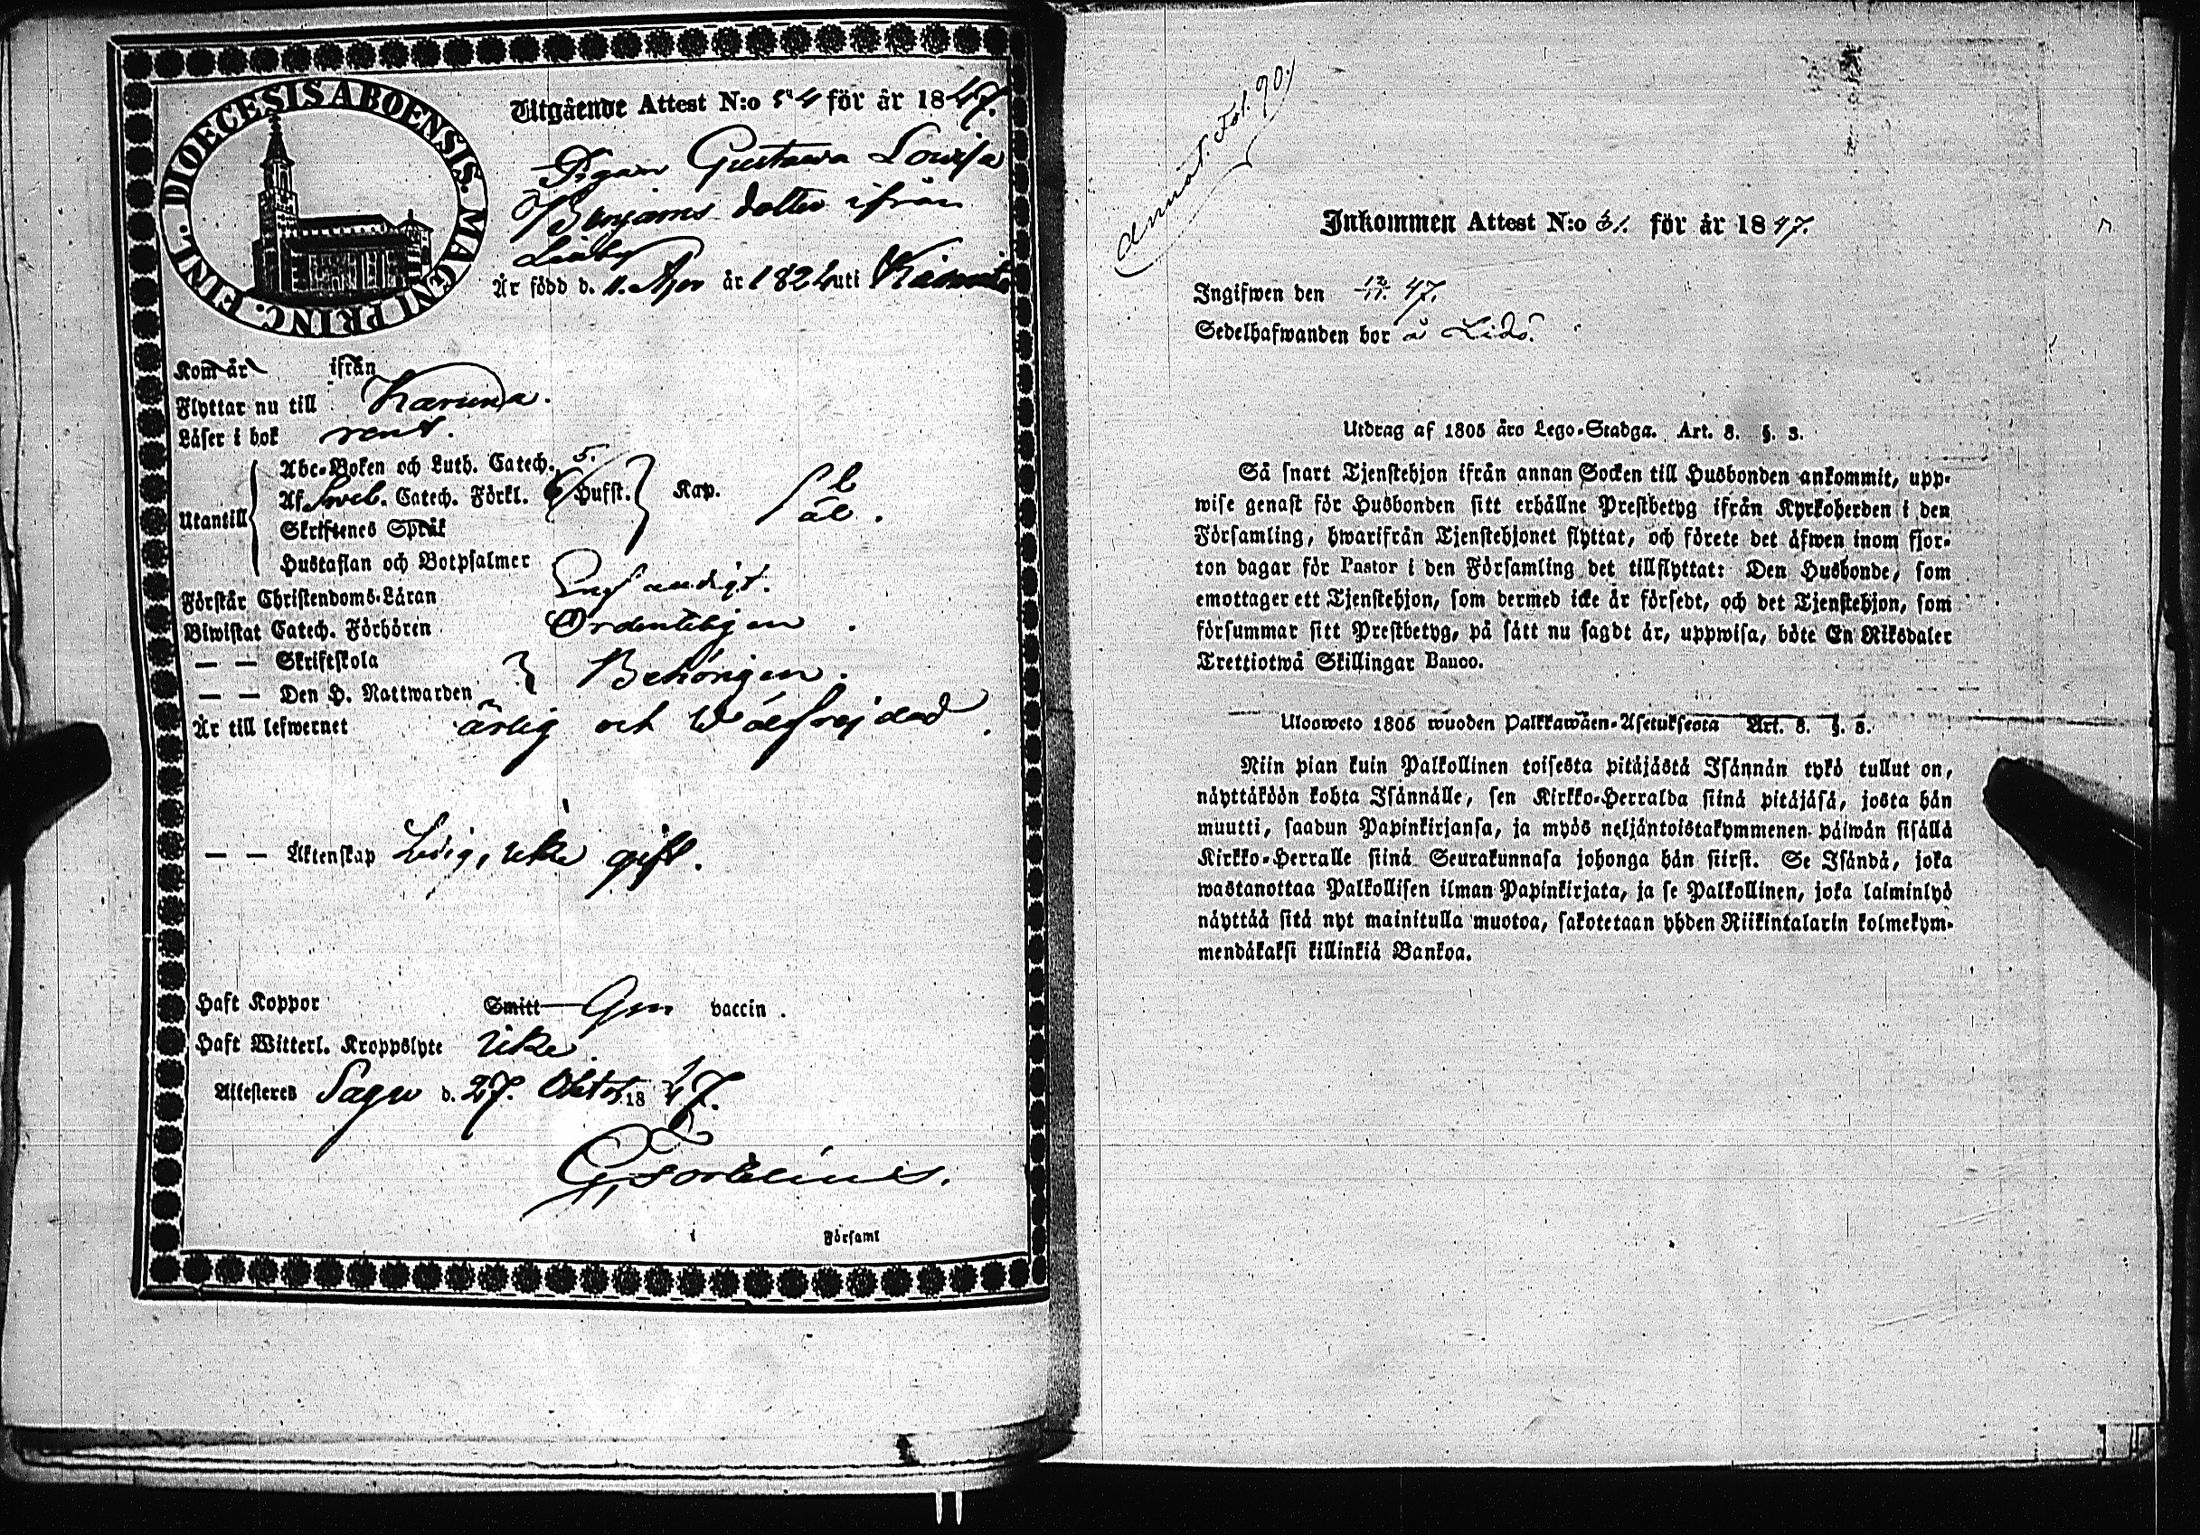 DIOECESIS ABOENSIS. MAGNI PRINC. FINL.
Utgående Attest N:o 54 för år 1847.
Pigan Gustawa Lowisa
Benjams dotter ifrån
Lindby
Är född d. 11. Apr år 1824 uti Kimito
Kom år ifrån
Flyttar nu till Karuna.
Läser i bok rent.
Utantill
Abc-Boken och Luth. Catech. 5.
Af Sveb. Catech. Förkl. Hufst. Kap.
Skriftenes Språk
Hustaflan och Botpsalmer
Förstår Christendoms-Läran
Biwistat Catech. Förhören Ordenteligen.
— — Skriftskola
— — Den H. Nattwarden } Behörigen.
Är till lefwernet ärlig och wälfrejdad.
— — Äktenskap Ledig, icke gift.
Haft Koppor Smitt Gen vaccin.
Haft Witterl. Kroppslyte icke
Attesteres Sagu d. 27. Oktob. 1847.
G. Forteliius.
i Församl
Annot. Fol. 90.
Inkommen Attest N:o 31. för år 1847.
Ingifwen den 12/11. 47.
Sedelhafwanden bor å Lidö.
Utdrag af 1805 års Lego-Stadga. Art. 8. §. 3.
Så snart Tjenstehjon ifrån annan Socken till Husbonden ankommit, upp-
wise genast för Husbonden sitt erhållne Prestbetyg ifrån Kyrkoherden i den
Församling, hwarifrån Tjenstehjonet flyttat, och förete det äfwen inom fjor-
ton dagar för Pastor i den Församling det tillflyttat: Den Husbonde, som
emottager ett Tjenstehjon, som dermed icke är försedt, och det Tjenstehjon, som
försummar sitt Prestbetyg, på sätt nu sagdt är, uppwisa, böte En Riksdaler
Trettiotwå Skillingar Banco.
Ulosweto 1805 wuoden Palkkawäen-Asetuksesta Art. 8. §. 3.
Niin pian kuin Palkollinen toisesta pitäjästä Isännän tykö tullut on,
näyttäköön kohta Isännälle, sen Kirkko-Herralda siinä pitäjäsä, josta hän
muutti, saadun Papinkirjansa, ja myös neljäntoistakymmenen päiwän sisällä
Kirkko-Herralle siinä Seurakunnasa johonga hän siirsi. Se Isändä, joka
wastanottaa Palkollisen ilman Papinkirjata, ja se Palkollinen, joka laiminlyö
näyttää sitä nyt mainitulla muotoa, sakotetaan yhden Riikintalarin kolmekym-
mendäkaksi killinkiä Bankoa.